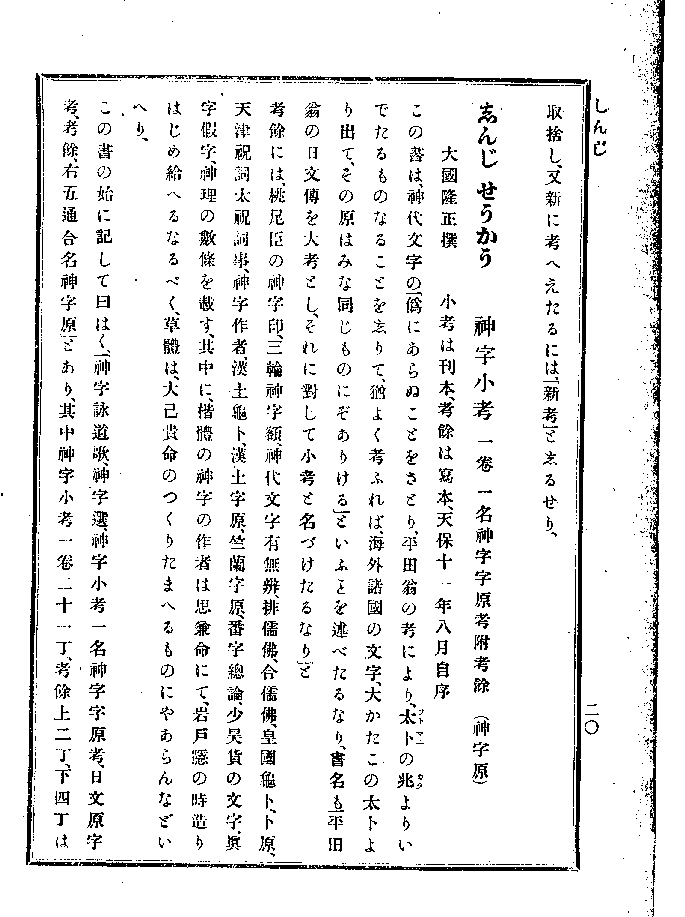 しんじ
二〇
取捨し、又新に考へえたるには、「新考」とゑるせり、
ゑんじせうかう 神字小考 一卷 一名神字字原考附考餘 (神字原)
大國隆正撰 小考は刊本、考餘は寫本、天保十一年八月自序
この書は、神代文字の「僞にあらぬことをさとり、平田翁の考により、太卜の兆よりい
でたるものなることをゑりて、猶よく考ふれば、海外諸國の文字、大かたこの太卜よ
り出て、その原はみな同じものにぞありける」といふことを述べたるなり、書名も「平田
翁の日文傳を大考とし、それに對して小考と名づけたるなり」と
考餘には、桃尼臣の神字印、三輪神字額、神代文字有無辨、排儒佛、合儒佛、皇國龜卜、卜原、
天津祝詞太祝詞事、神字作者、漢土龜卜、漢土字原、竺蘭字原、番字總論、少昊貨の文字、眞
字假字、神理の數條を載す、其中に、楷體の神字の作者は思兼命にて、岩戸隱の時造り
はじめ給へるなるべく、草體は、大己貴命のつくりたまへるものにやあらんなどい
へり、
この書の始に記して曰はく、「神字詠道歌、神字選、神字小考一名神字字原考、日文原字
考、考餘、右五通合名神字原」とあり、其中神字小考一卷二十一丁、考餘上二丁、下四丁は